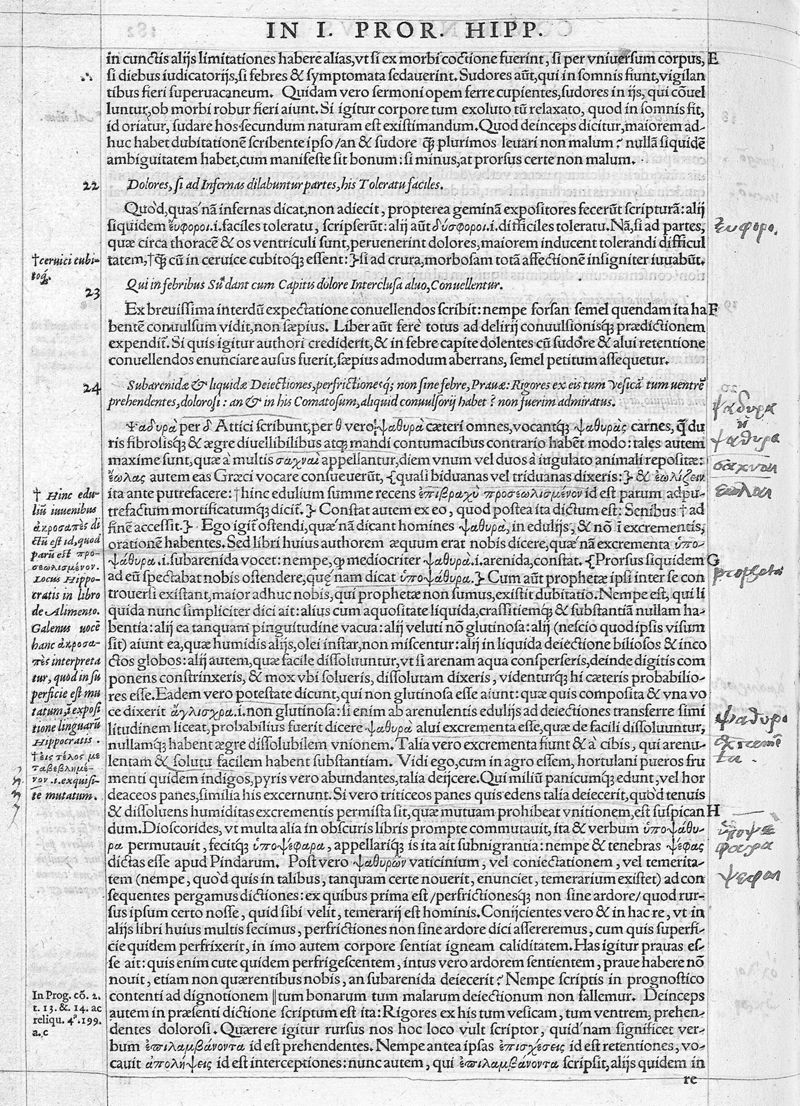 IN I. PROR. HIPP.
in cunctis alijs limitationes habere alias, vt si ex morbi coctione fuerint, si per vniuersum corpus, E
si diebus iudicatorijs, si febres & symptomata sedauerint. Sudores aūt, qui in somnis fiunt, vigilan
tibus fieri superuacaneum. Quidam vero sermoni opem ferre cupientes, sudores in ijs, qui cōuel
luntur, ob morbi robur fieri aiunt. Si igitur corpore tum exoluto tū relaxato, quod in somnis fit,
id oriatur, sudare hos secundum naturam est existimandum. Quod deinceps dicitur, maiorem ad-
huc habet dubitationē scribente ipso/an & sudore qp̄ plurimos leuari non malum? nullā siquidē
ambiguitatem habet, cum manifeste sit bonum: si minus, at prorsus certe non malum.
22 Dolores, si ad Infernas dilabuntur partes, his Toleratu faciles.
Quòd, quas'nā infernas dicat, non adiecit, propterea geminā expositores fecerūt scripturā: alij
siquidem ἔυφοροι.i. faciles toleratu, scripserūt: alij aūt δύσφοροι.i. difficiles toleratu. Nā, si ad partes,
quæ circa thoracē & os ventriculi sunt, peruenerint dolores, maiorem inducent tolerandi difficul
tatem, †qp̄ cū in ceruice cubitoq; essent: }si ad crura, morbosam totā affectionē insigniter iuuabūt.
†ceruici cubi-
toq;.
23 Qui in febribus Su'dant cum Capitis dolore Interclusa aluo, Conuellentur.
Ex breuissima interdū expectatione conuellendos scribit: nempe forsan semel quendam ita ha F
bentē conuulsum vidit, non sæpius. Liber aūt ferè totus ad delirij conuulsionisq; prædictionem
expendit. Si quis igitur authori crediderit, & in febre capite dolentes cū sudore & alui retentione
conuellendos enunciare ausus fuerit, sæpius admodum aberrans, semel petitum assequetur.
24 Subarenidæ & liquidæ Deiectiones, perfrictionesq; non sine febre, Prauæ: Rigores ex eis tum Vesicā tum uentrē
prehendentes, dolorosi: an & in his Comatosum, aliquid conuulsorij habet? non fuerim admiratus.
Ψαδυρα per δ Attici scribunt, per θ vero ψαθυρὰ cæteri omnes, vocantq; ψαθυρὰς carnes, q̄ du
ris fibrosisq; & ægre diuellibilibus atq; mandi contumacibus contrario habēt modo: tales autem
maxime sunt, quæ à multis σαχναὶ appellantur, diem vnum vel duos à iugulato animali repositæ:
ἑωλας autem eas Græci vocare consueuerūt, {quasi biduanas vel triduanas dixeris: } & ἑωλίζειν
ita ante putrefacere: †hinc edulium summe recens ἐπιβραχὺ προσεωλισμένον id est parum adpu-
trefactum mortificatumq; dicit. } Constat autem ex eo, quod postea ita dictum est: Senibus † ad
finē accessit. } Ego igit̄ ostendi, quæ'nā dicant homines ψαθυρὰ, in edulijs, & nō ī excrementis,
orationē habentes. Sed libri huius authorem æquum erat nobis dicere, quæ'nā excrementa ὑπο-
ψάθυρα.i. subarenida vocet: nempe, qp̄ mediocriter ψαθυρα.i. arenida, constat. {Prorsus siquidem G
ad eū spectabat nobis ostendere, quę'nam dicat ὑποψάθυρα.} Cum aūt prophetæ ipsi inter se con
trouersi existant, maior adhuc nobis, qui prophetæ non sumus, existit dubitatio. Nempe est, qui li
quida nunc simpliciter dici ait: alius cum aquositate liquida, crassitiemq; & substantiā nullam ha-
bentia: alij ea tanquam pinguitudine vacua: alij veluti nō glutinosa: alij (nescio quod ipsis visum
sit) aiunt ea, quæ humidis alijs, olei instar, non miscentur: alij in liquida deiectione biliosos & inco
ctos globos: alij autem, quæ facile dissoluuntur, vt si arenam aqua consperseris, deinde digitis com
ponens constrinxeris, & mox vbi solueris, dissolutam dixeris, videnturq; hi cæteris probabilio-
res esse. Eadem vero potestate dicunt, qui non glutinosa esse aiunt: quæ quis composita & vna vo
ce dixerit ἄγλισχρα.i. non glutinosa: si enim ab arenulentis edulijs ad deiectiones transferre simi
litudinem liceat, probabilius fuerit dicere ψαθυρα alui excrementa esse, quæ de facili dissoluuntur,
nullamq; habent ægre dissolubilem vnionem. Talia vero excrementa fiunt & à cibis, qui arenu-
lentam & solutu facilem habent substantiam. Vidi ego, cum in agro essem, hortulani pueros fru
menti quidem indigos, pyris vero abundantes, talia deijcere. Qui miliū panicumq; edunt, vel hor
deaceos panes, similia his excernunt. Si vero triticeos panes quis edens talia deiecerit, quòd tenuis
& dissoluens humiditas excrementis permista sit, quæ mutuam prohibeat vnitionem, est suspican H
dum. Dioscorides, vt multa alia in obscuris libris prompte commutauit, ita & verbum ὑποψάθυ-
ρα permutauit, fecitq; ὑποψέφαρα, appellariq; is ita ait subnigrantia: nempe & tenebras ψέφας
dictas esse apud Pindarum. Post vero ψαθυρῶν vaticinium, vel coniectationem, vel temerita-
tem (nempe, quòd quis in talibus, tanquam certe nouerit, enunciet, temerarium existet) ad con
sequentes pergamus dictiones: ex quibus prima est/perfrictionesq; non sine ardore/quod rur-
sus ipsum certo nosse, quid sibi velit, temerarij est hominis. Conijcientes vero & in hac re, vt in
alijs libri huius multis fecimus, perfrictiones non sine ardore dici assereremus, cum quis superfi-
cie quidem perfrixerit, in imo autem corpore sentiat igneam caliditatem. Has igitur prauas es-
se ait: quis enim cute quidem perfrigescentem, intus vero ardorem sentientem, praue habere nō
nouit, etiam non quærentibus nobis, an subarenida deiecerit? Nempe scriptis in prognostico
contenti ad dignotionem ‖tum bonarum tum malarum deiectionum non fallemur. Deinceps
autem in præsenti dictione scriptum est ita: Rigores ex his tum vesicam, tum ventrem, prehen-
dentes dolorosi. Quærere igitur rursus nos hoc loco vult scriptor, quid'nam significet ver-
bum ἐπιλαμβάνοντα id est prehendentes. Nempe antea ipsas ἐπισχέσεις id est retentiones, vo-
cauit ἀπολήψεις id est interceptiones: nunc autem, qui ἐπιλαμβάνοντα scripsit, alijs quidem in
re
† Hinc edu-
liū iuuenibus
ἀκροσαπὲς di
ctū est id, quod
parū est προ-
σεωλισμένον.
Locus Hippo-
cratis in libro
de Alimento.
Galenus uocē
hanc ἀκροσα-
πὲς interpreta
tur, quod in su
perficie est mu
tatum, ī exposi
tione linguarū
Hippocratis.
†εἰς τέλος με
ταβεβλημέ-
νον.i. exquisi-
te mutatum.
In Prog. cō. 2.
t. 13. & 14. ac
reliqu. 4°. 199.
a. c
ἔυφορο.
ψαδυρα
ψαθυρα
σαχναι
εωλαι
prophetæ
ψαθυρα
ὑποψε
φαρα
ψεφαι